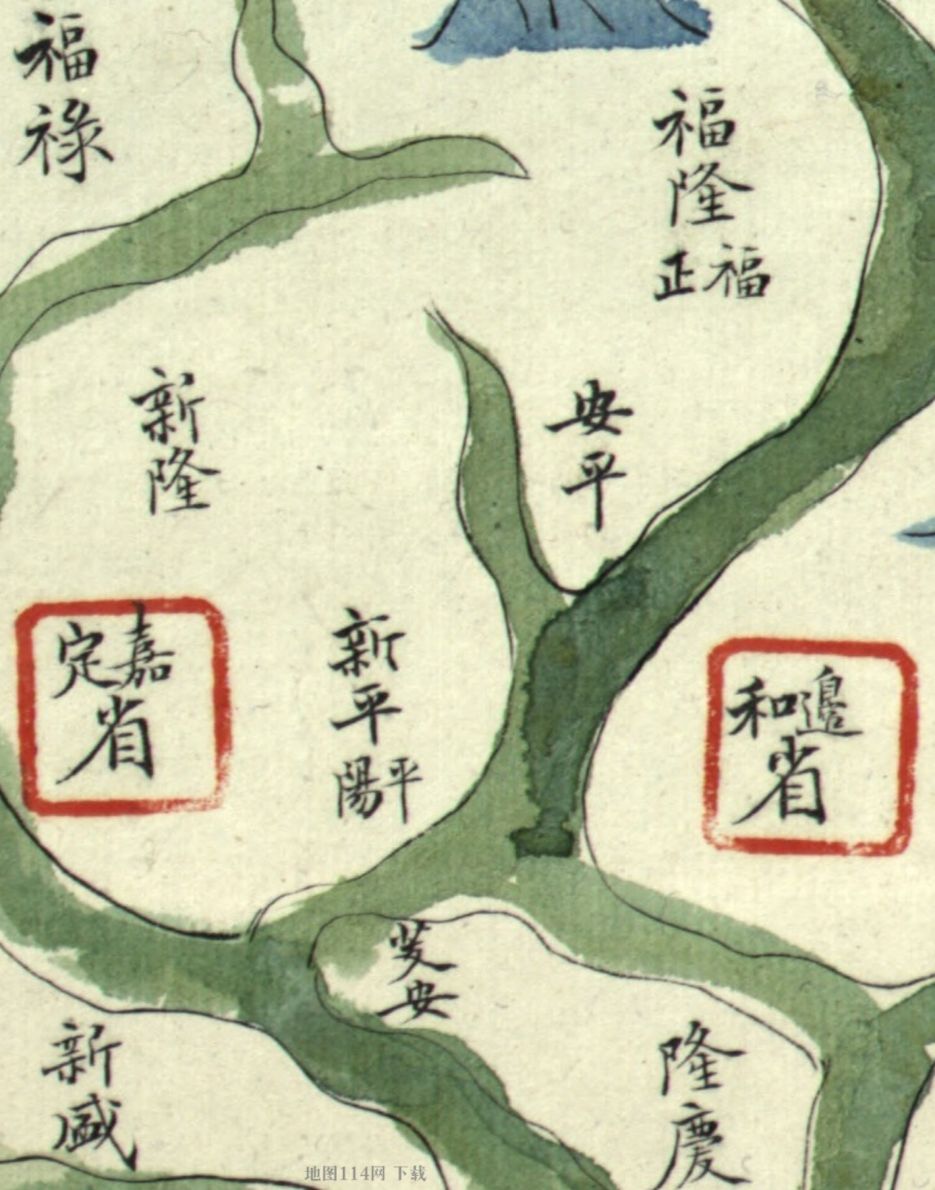 福祿
福隆
福正
新隆
安平
嘉定
省
新平
平陽
邊和
省
安
新盛
隆慶
地图114网 下载